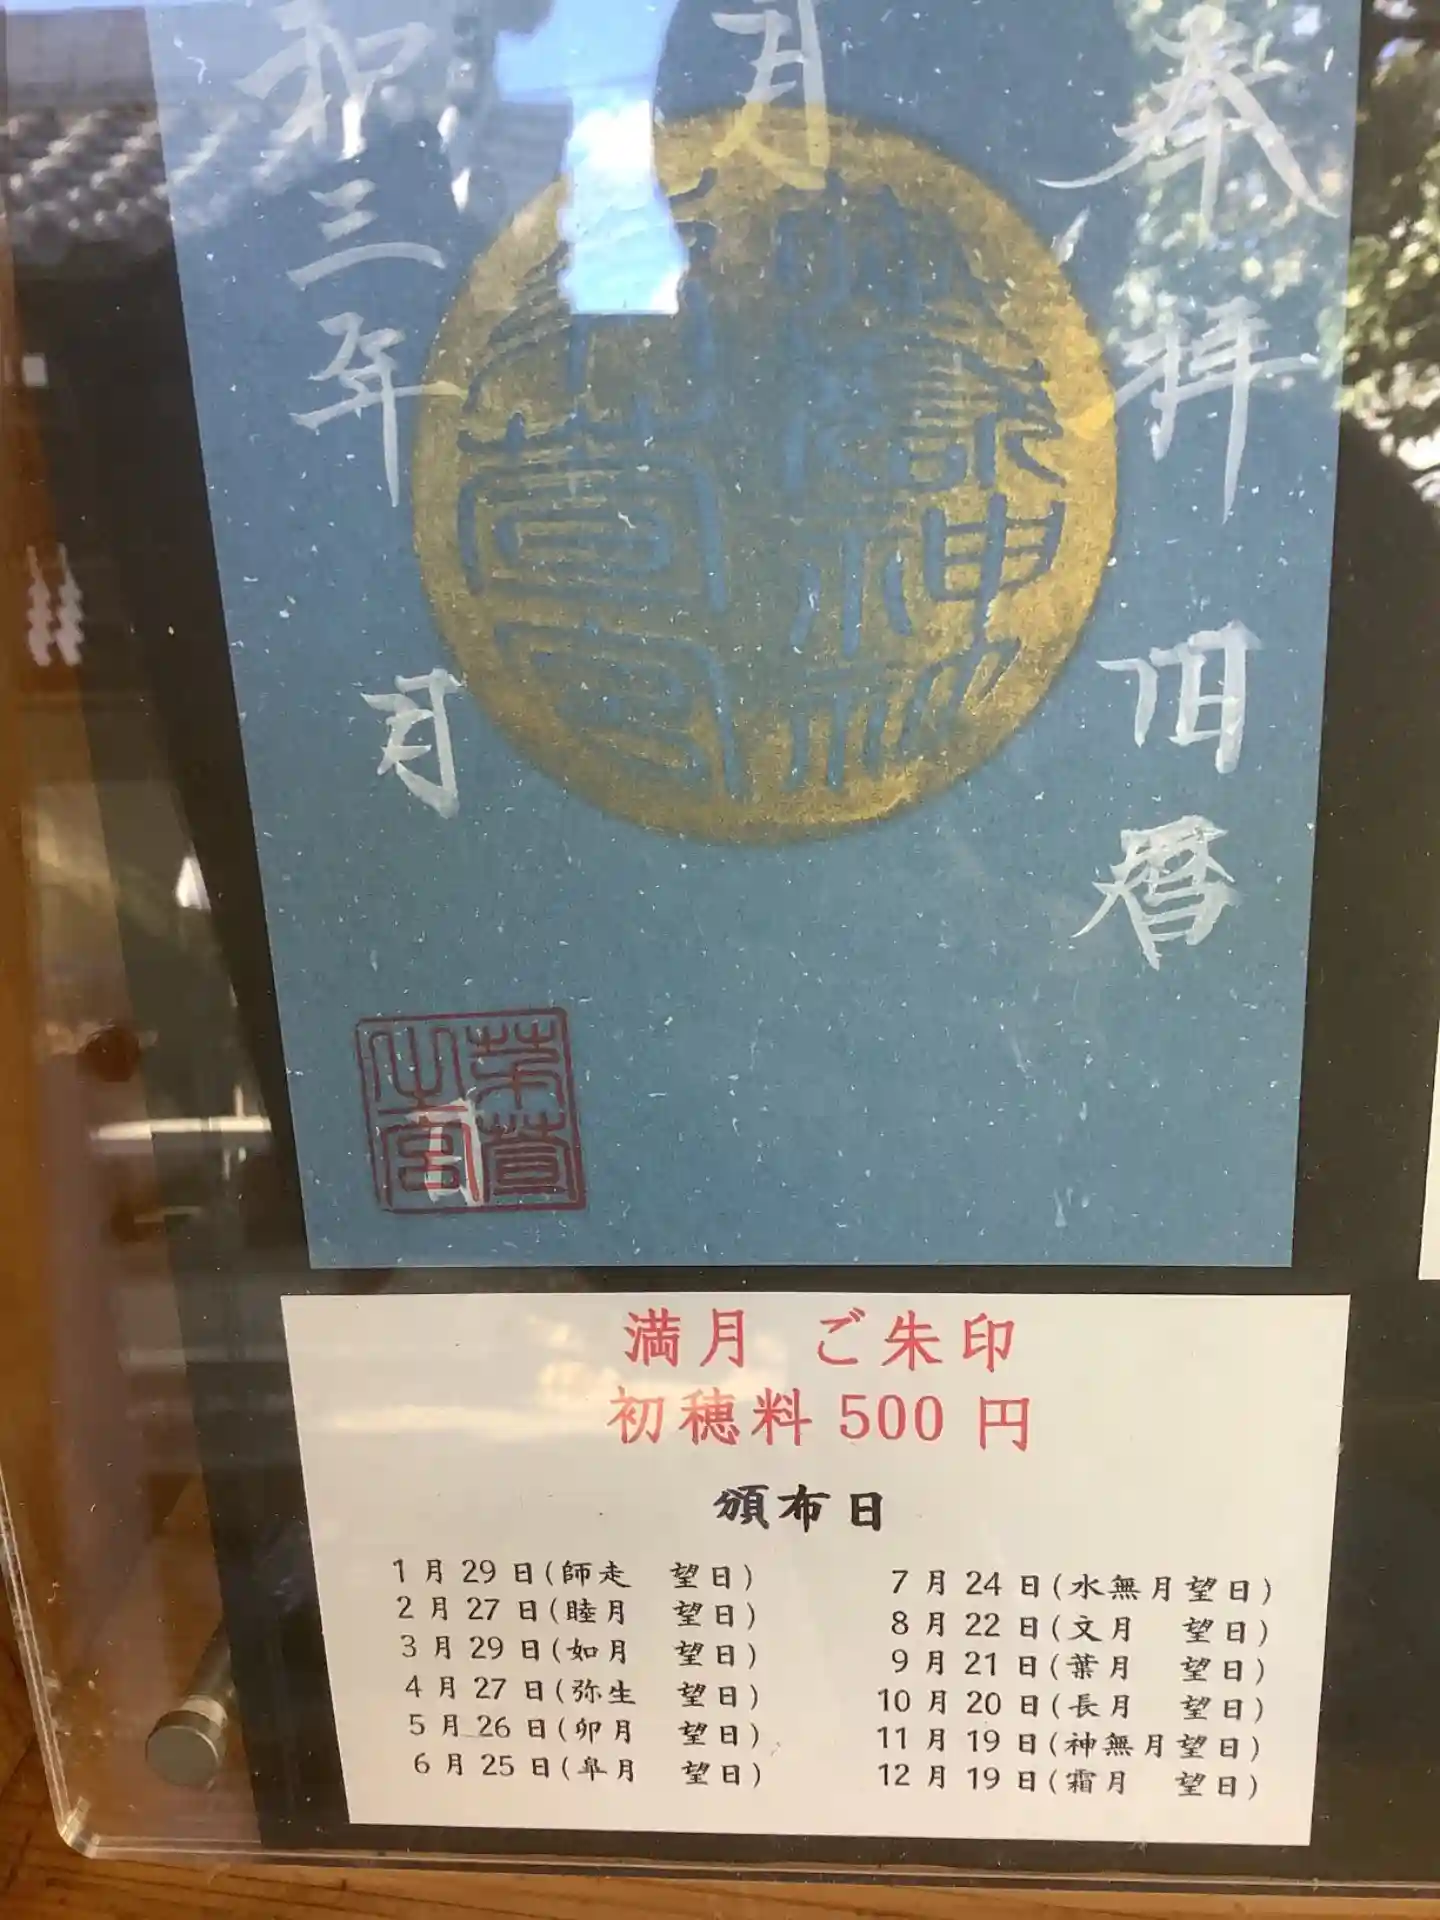 奉拝 旧暦
月
和三年 月
茅萱之宮
満月 ご朱印
初穂料 500 円
頒布日
1月29日(師走 望日)
2月27日(睦月 望日)
3月29日(如月 望日)
4月27日(弥生 望日)
5月26日(卯月 望日)
6月25日(皐月 望日)
7月24日(水無月望日)
8月22日(文月 望日)
9月21日(葉月 望日)
10月20日(長月 望日)
11月19日(神無月望日)
12月19日(霜月 望日)